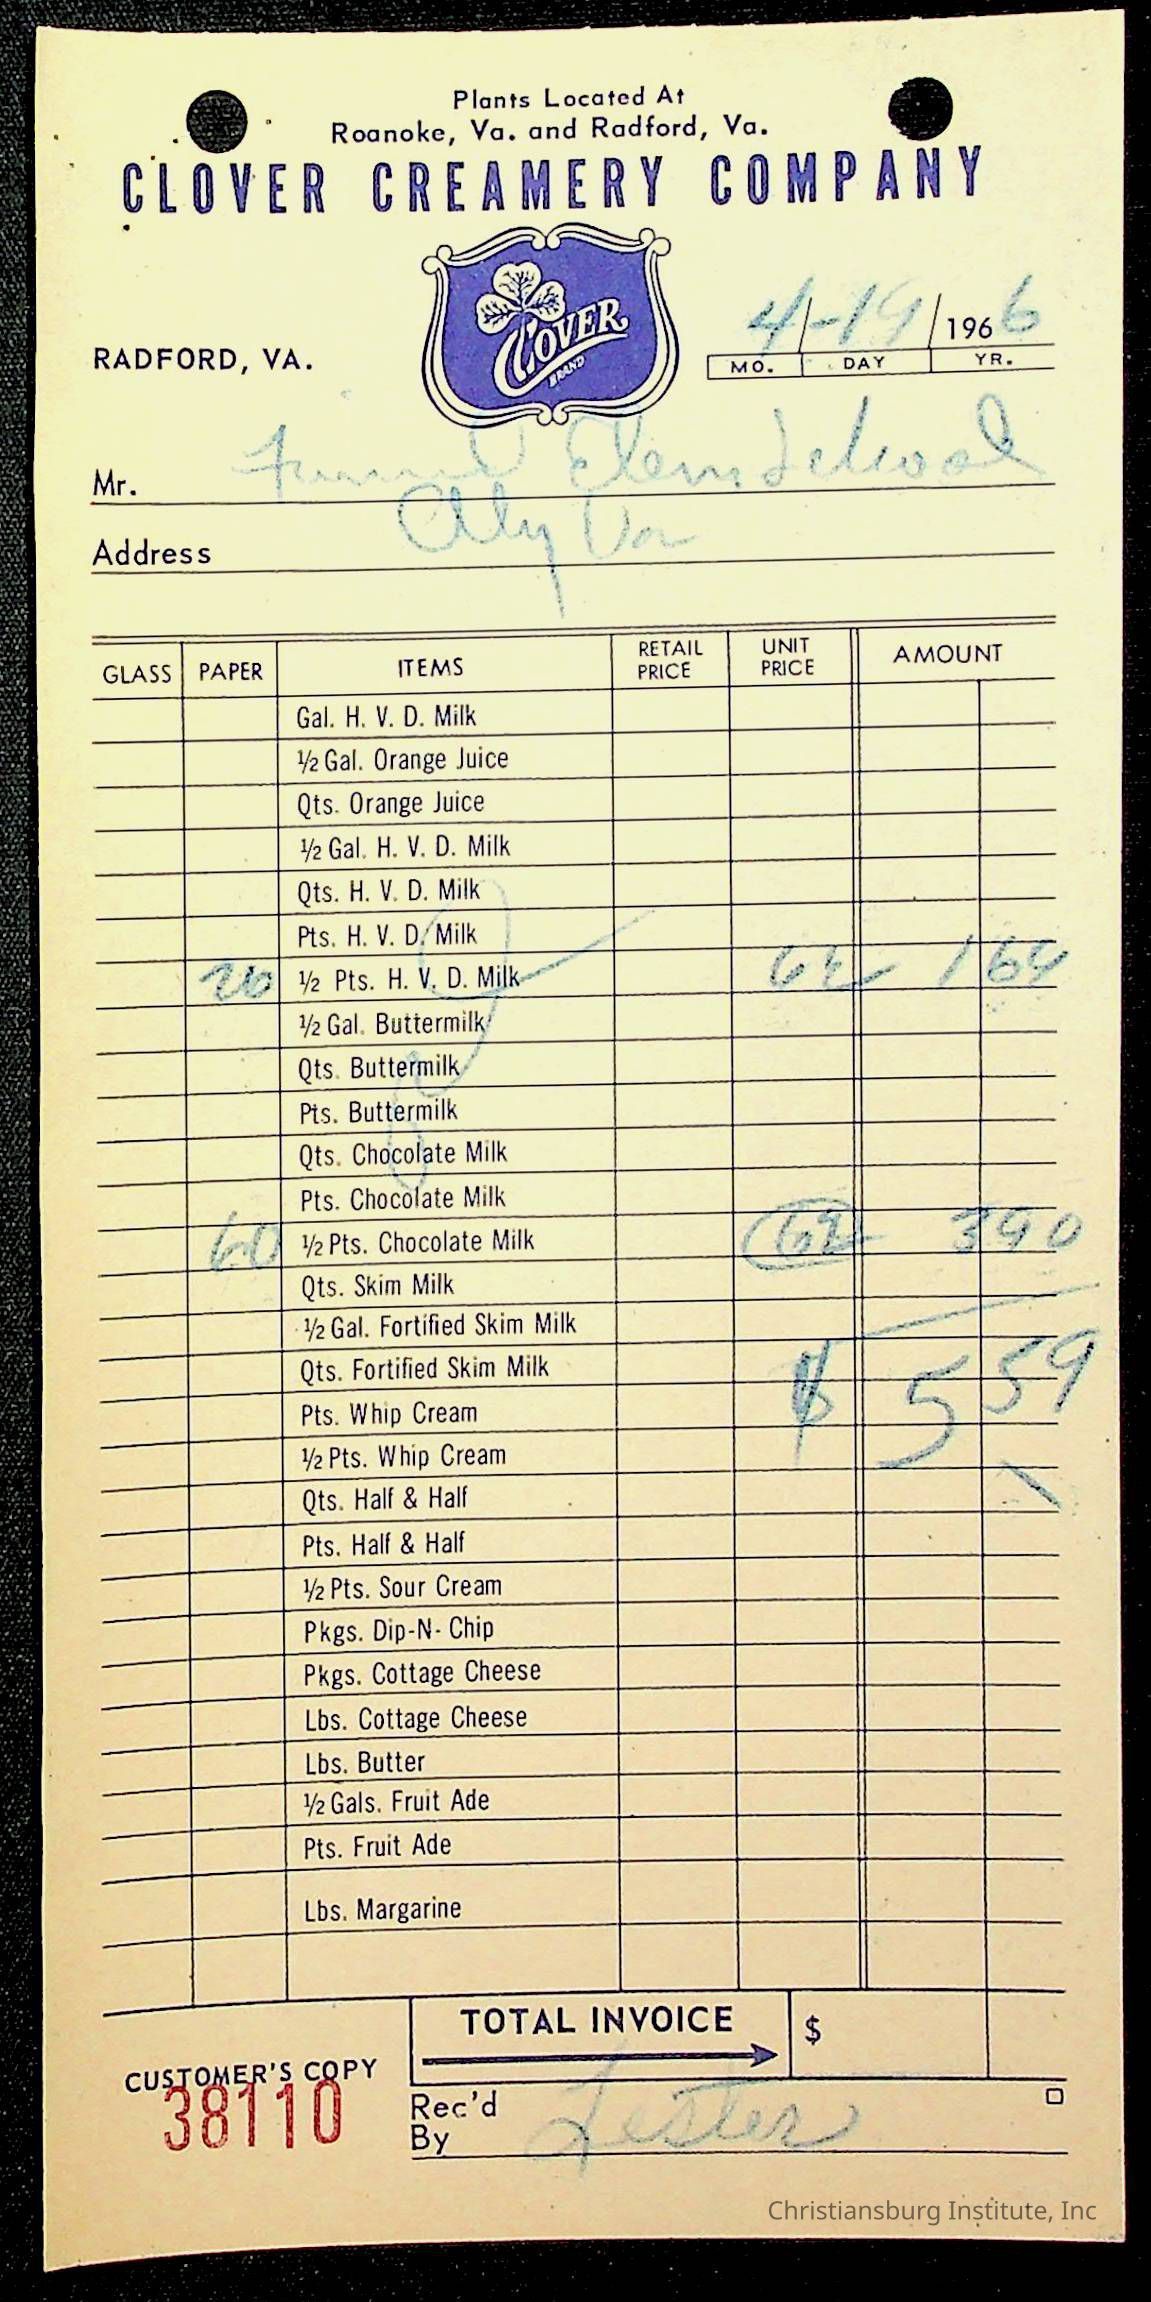 Plants Located At
Roanoke, Va. and Radford, Va.
CLOVER CREAMERY COMPANY
CLOVER
BRAND
4-19 1966
MO. DAY YR.
RADFORD, VA.
Mr. Elem School
Address Va
GLASS PAPER ITEMS RETAIL PRICE UNIT PRICE AMOUNT
Gal. H. V. D. Milk
½ Gal. Orange Juice
Qts. Orange Juice
½ Gal. H. V. D. Milk
Qts. H. V. D. Milk
Pts. H. V. D. Milk
26 ½ Pts. H. V. D. Milk 1 64
½ Gal. Buttermilk
Qts. Buttermilk
Pts. Buttermilk
Qts. Chocolate Milk
Pts. Chocolate Milk
60 ½ Pts. Chocolate Milk 3 90
Qts. Skim Milk
½ Gal. Fortified Skim Milk
Qts. Fortified Skim Milk
$ 5 59
Pts. Whip Cream
½ Pts. Whip Cream
Qts. Half & Half
Pts. Half & Half
½ Pts. Sour Cream
Pkgs. Dip-N-Chip
Pkgs. Cottage Cheese
Lbs. Cottage Cheese
Lbs. Butter
½ Gals. Fruit Ade
Pts. Fruit Ade
Lbs. Margarine
TOTAL INVOICE $
CUSTOMER'S COPY
38110
Rec'd By Lester
Christiansburg Institute, Inc